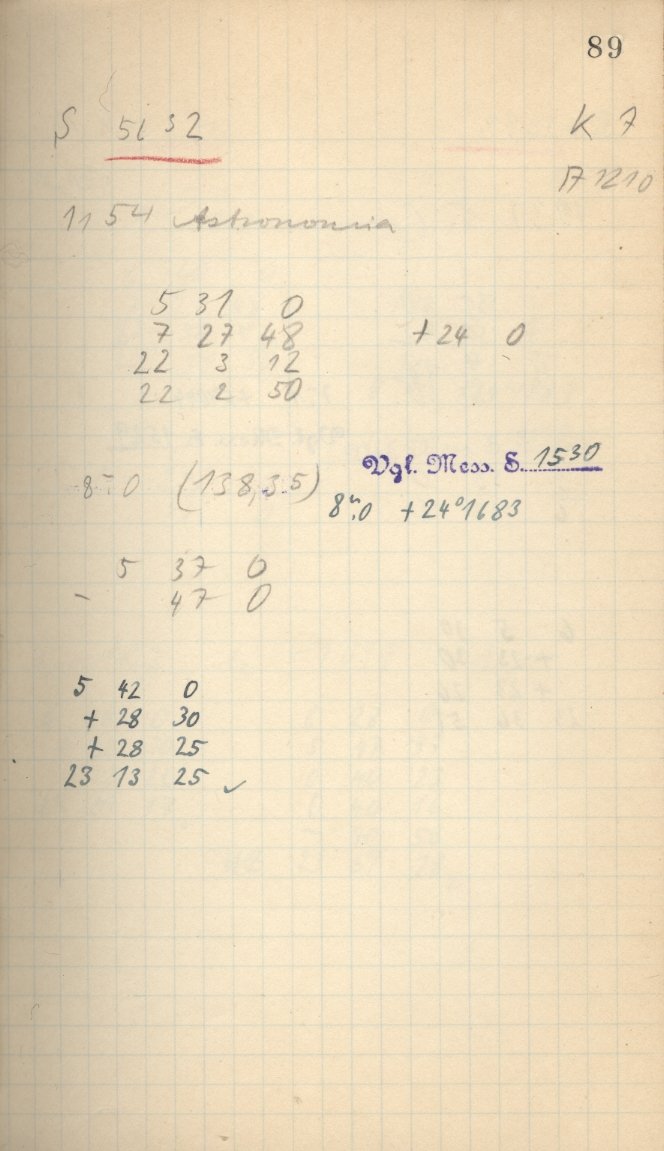 89
S 5132 K 7
A 1210
1154 Astronomia
5 31 0
7 27 48 +24 0
22 3 12
22 2 50
Vgl. Mess. S. 1530
8m.0 (138,35) 8m.0 +24°1683
5 37 0
- 47 0
5 42 0
+ 28 30
+ 28 25
23 13 25 ✓